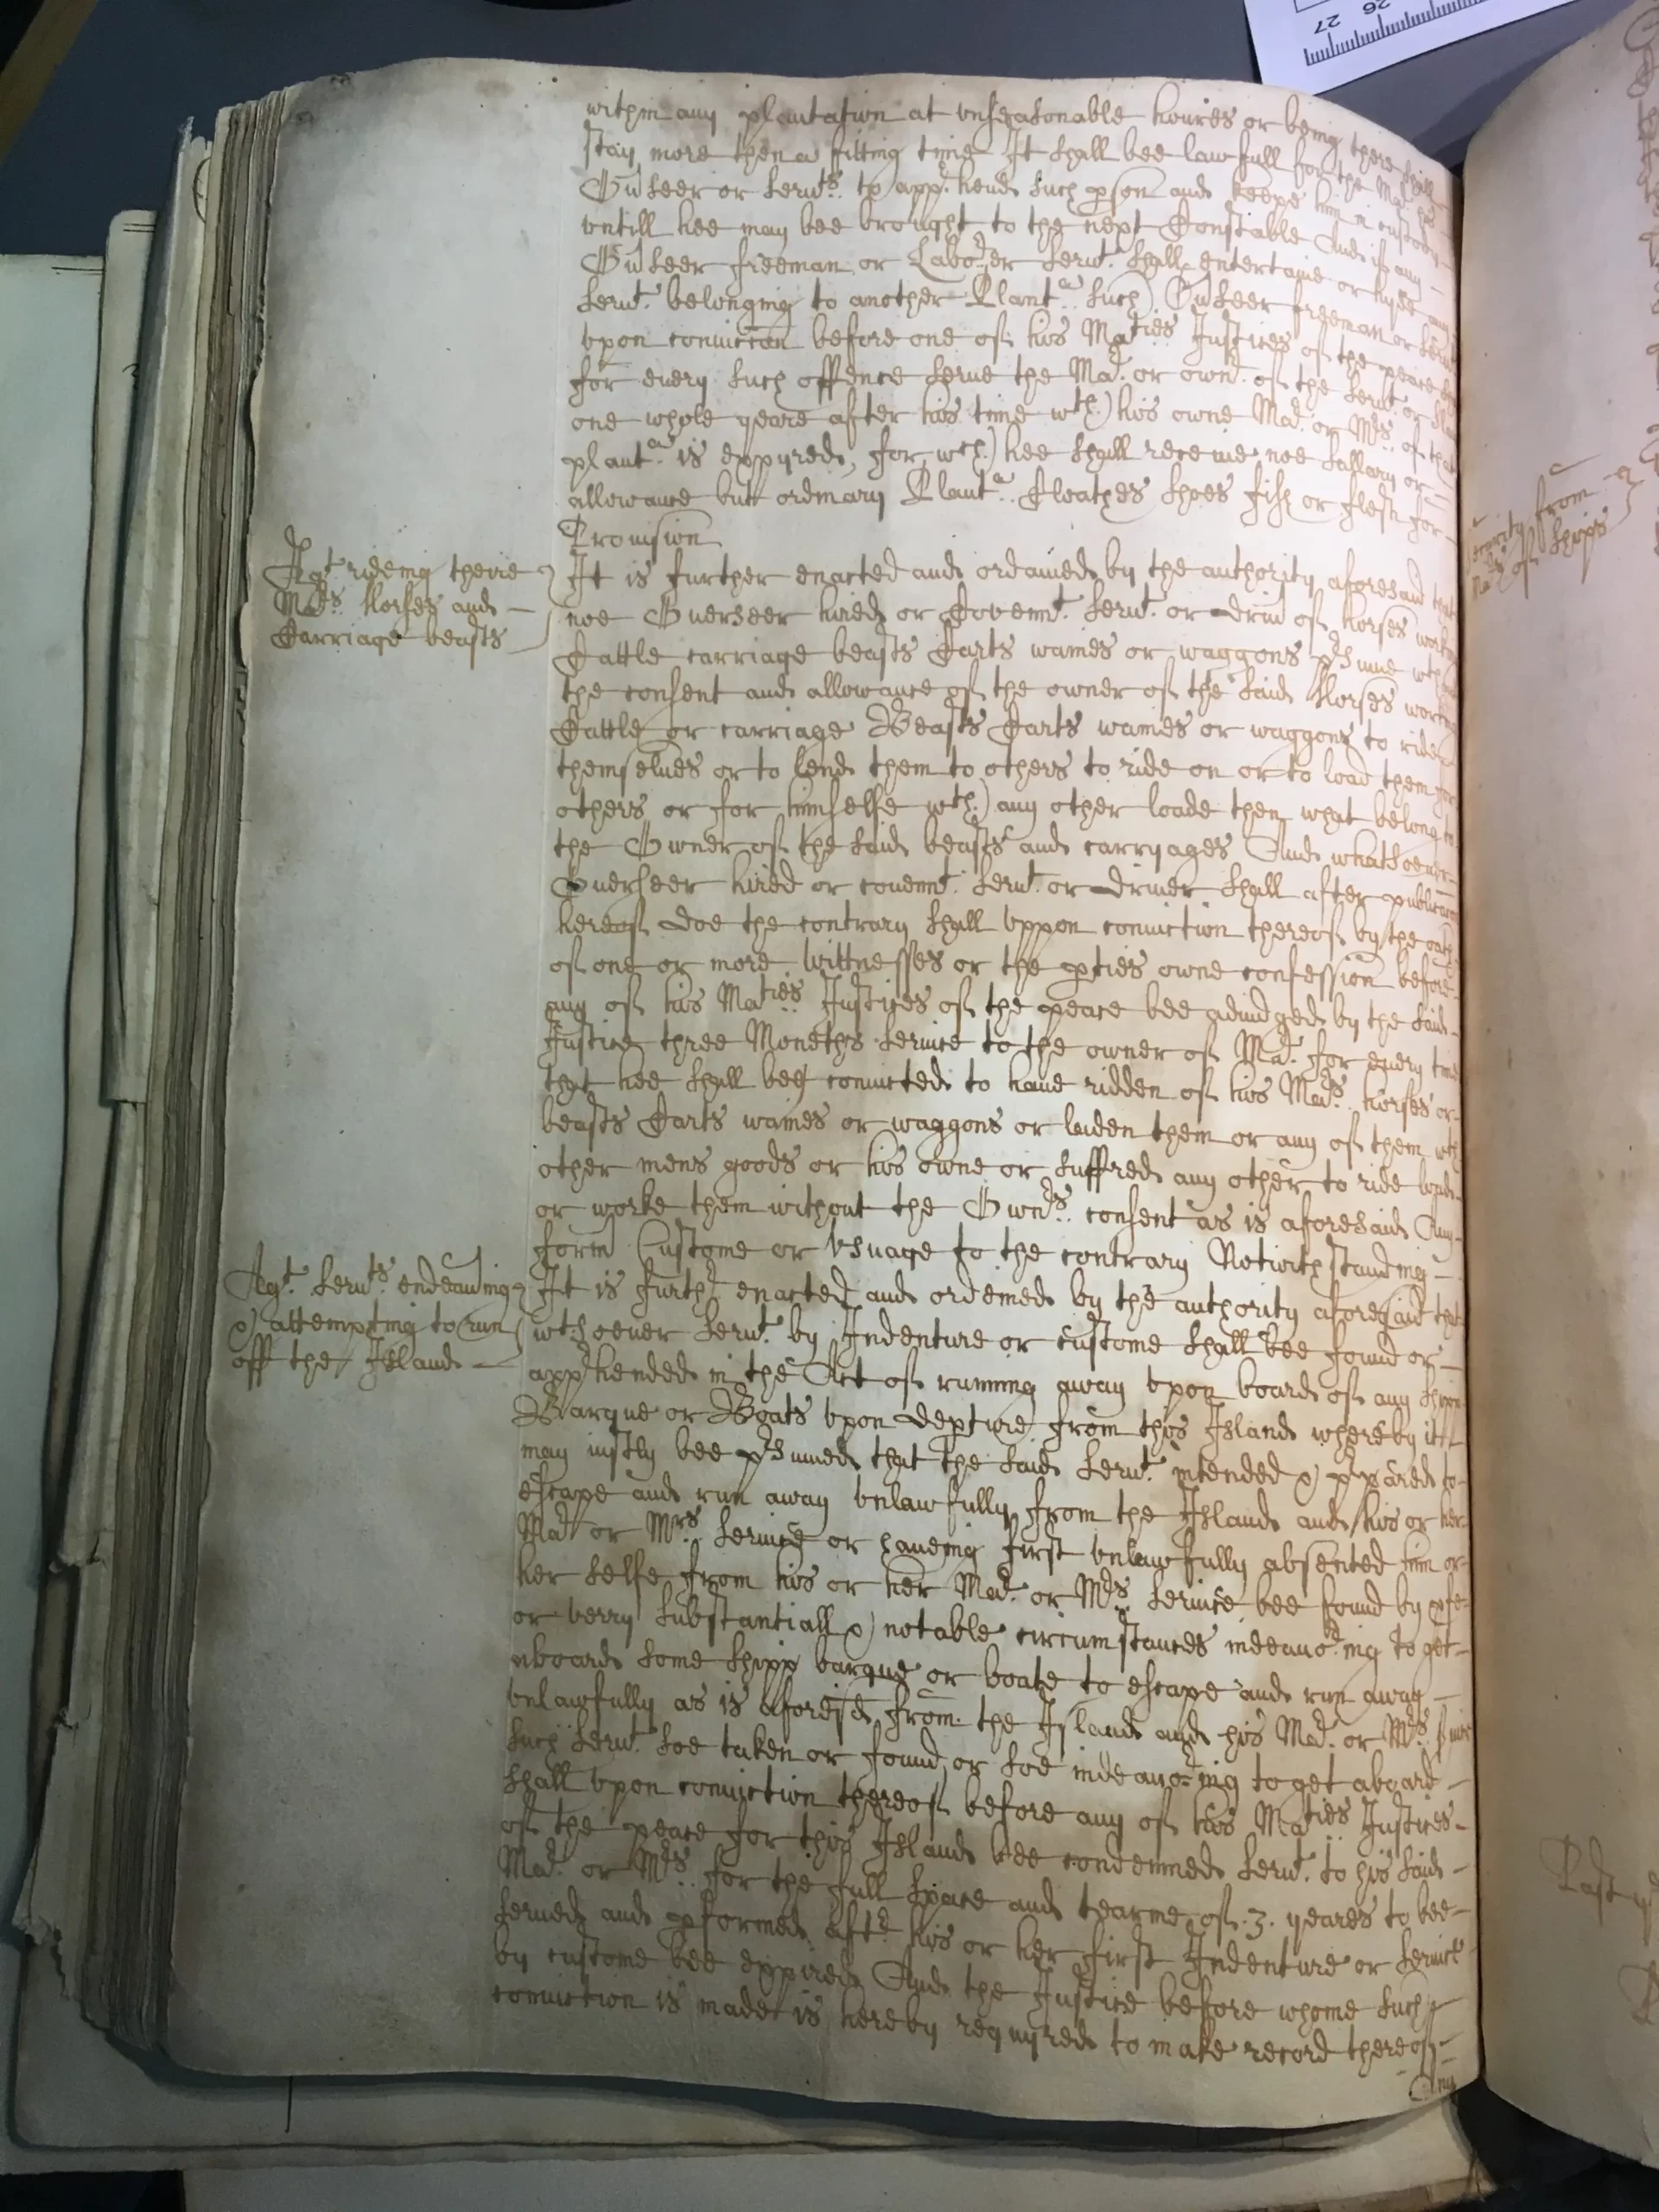 within any plantation at vnseasonable houres or being there shall
stay more then a fitting time It shall bee lawfull for the Mar. his
Ou'seer or seruts. to appr.hend such pson and keepe him in custody
vntill hee may bee brought to the next Constable And if any
Ou'seer freeman or Labor.er Serut. shall entertaine or hyde any
Serut. belonging to another Planta. such Ou'seer freeman or Serut
vpon conuiccon before one of his Maties Justices of the peace
for euery such offence serue the Mar. or ownr. of the Serut. or
one whole yeare after his time wth. his owne Mar. or Mrs. of that
planta. is expyred, for wch. hee shall receiue noe Sallary or
allowance butt ordinary Planta. Cloathes shoes fish or flesh for
Prouision
Agt. rideing theire
Mars. Horses and
Carriage beasts
It is further enacted and ordained by the authority aforesaid that
noe Ouerseer hired or Covennt. Serut. or driur of Horses working
Cattle carriage beasts Carts waines or waggons prsume wthout
the consent and allowance of the owner of the said Horses working
Cattle or carriage Beasts Carts waines or waggons to ride
themselues or to lend them to others to ride on or to load them for
others or for himselfe wth. any other loade then what belong to
the Owner of the said beasts and carryages And whatsoeuer
Ouerseer hired or couennt. Serut. or driuer shall after publicacon
hereof doe the contrary shall vppon conuiction thereof by the oath
of one or more wittnesses or the pties owne confession before
any of his Maties Justices of the peace bee adiudged by the said
Justice three Moneths seruice to the owner or Mar. for euery time
that hee shall bee conuicted to haue ridden of his Mars. horses or
beasts Carts waines or waggons or laiden them or any of them wth
other mens goods or his owne or suffred any other to ride load
or worke them without the Ownrs. consent as is aforesaid Any
form Custome or vsuage to the contrary Notwithstanding
Agt. Seruts. endeauoring
& attempting to run
off the Island
It is furthr enacted and ordeined by the authority aforesaid that
wtsoeuer Serut. by Indenture or custome shall bee found or
apprhended in the Act of running away vpon board of any Shipp
Barque or Boats vpon depture from this Island whereby itt
may iustly bee prsumed that the said Serut. intended & prpared to
escape and run away vnlawfully from the Island and his or her
Mar or Mrs. Seruice or haueing first vnlawfully absented him or
her selfe from his or her Mar. or Mrs. Seruice bee found by
or verry substantiall & notable circumstances indeauor.ing to get
aboard some shipp barque or boate to escape and run away
vnlawfully as is aforesd. from the Island and his Mar. or Mrs.
such Serut. soe taken or found or soe indeauor.ing to get aboard
shall vpon conuiction thereof before any of his Maties Justices
of the peace for this Island bee condemned Serut. to his said
Mar. or Mrs. for the full space and tearme of .3. yeares to bee
serued and pformed aftr his or her first Indenture or Seruice
by custome bee expired And the Justice before whome such
conuiction is made is hereby requyred to make record thereof
Any
from
of Ships